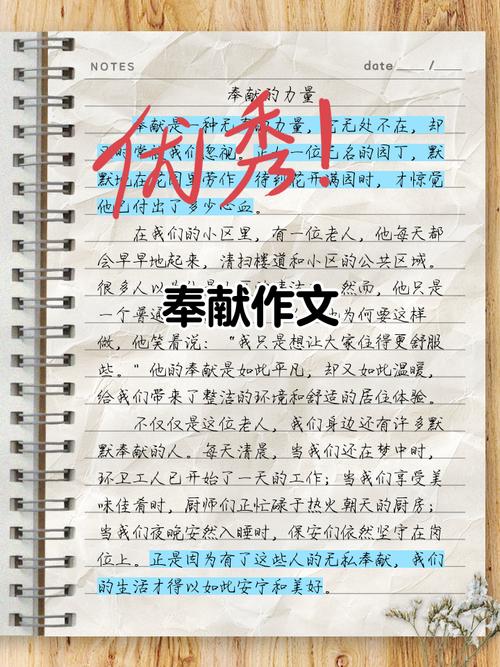 NOTES
date ___ / ___
奉献的力量
奉献是一种无声的力量，它无处不在，却
又时常被我们忽视。正如一位无名的园丁，默
默地在花园里劳作，待到花开满园时，才惊觉
他已付出了多少心血。
优秀！
在我们的小区里，有一位老人，他每天都
会早早地起来，清扫楼道和小区的公共区域。
很多人以为他是 然而，他只是
一个普通 他为何要这样
奉献作文
做，他笑着说："我只是想让大家住得更舒服
些。"他的奉献是如此平凡，却又如此温暖，
给我们带来了整洁的环境和舒适的居住体验。
不仅仅是这位老人，我们身边还有许多默
默奉献的人。每天清晨，当我们还在梦中时，
环卫工人已开始了一天的工作；当我们享受美
味佳肴时，厨师们正忙碌于热火朝天的厨房；
当我们夜晚安然入睡时，保安们依然坚守在岗
位上。正是因为有了这些人的无私奉献，我们
的生活才得以如此安宁和美好。